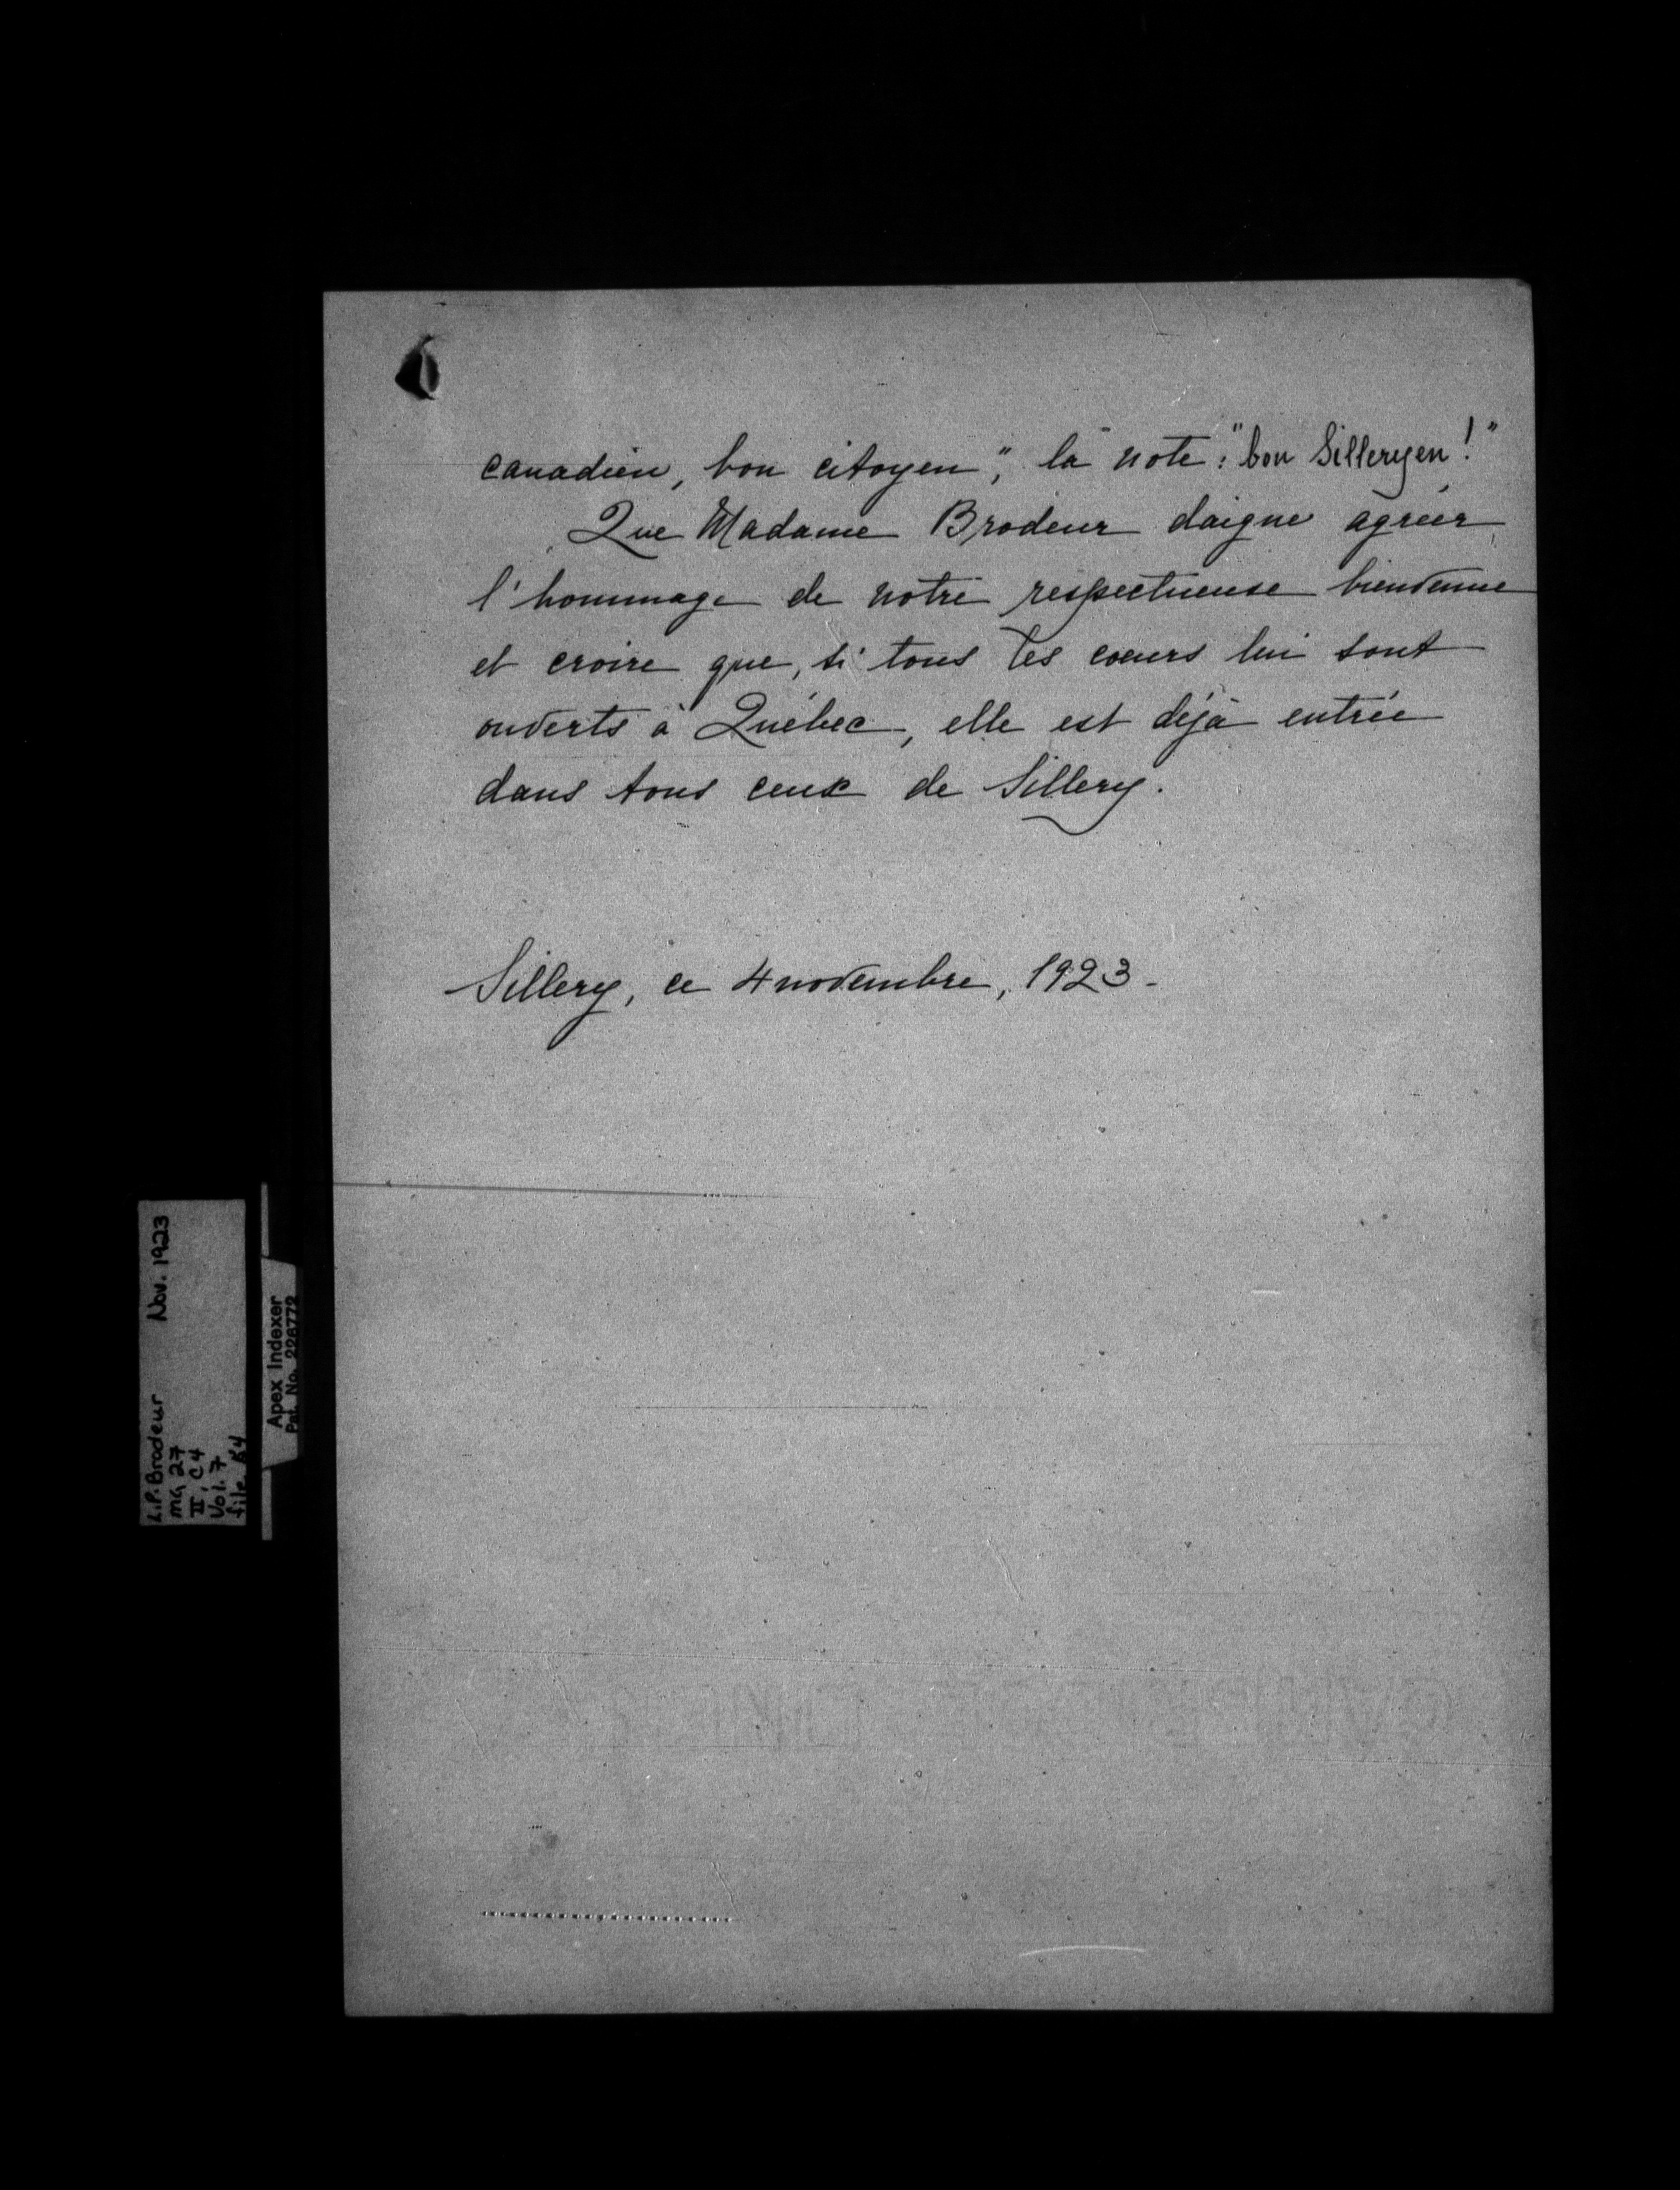 canadien, bon citoyen", la note: "bon Silleryen!"
Que Madame Brodeur daigne agréer
l'hommage de notre respectueuse bienvenue
et croire que, si tous les coeurs lui sont
ouverts à Québec, elle est déjà entrée
dans tous ceux de Sillery.
Sillery, ce 4 novembre, 1923-
L.P. Brodeur Nov. 1923
MG 27
II, C4
Vol. 7
file
Apex Indexer
Pat. No. 226772